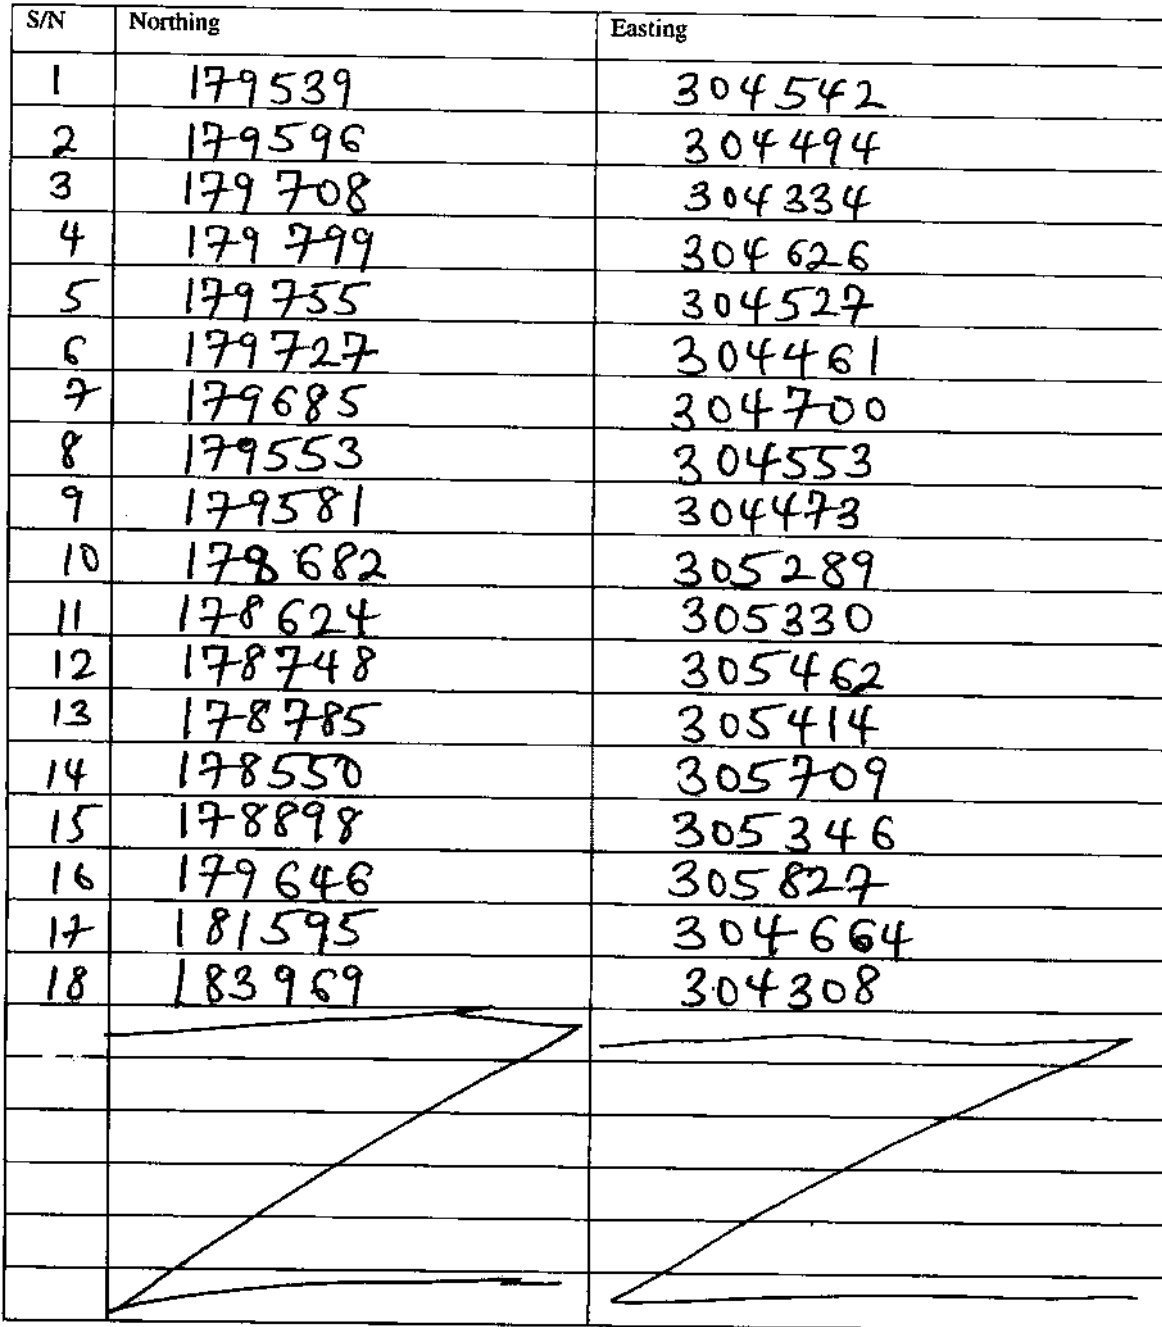 S/N Northing Easting
1 179539 304542
2 179596 304494
3 179708 304334
4 179799 304626
5 179755 304527
6 179727 304461
7 179685 304700
8 179553 304553
9 179581 304473
10 178682 305289
11 178624 305330
12 178748 305462
13 178785 305414
14 178550 305709
15 178898 305346
16 179646 305827
17 181595 304664
18 183969 304308